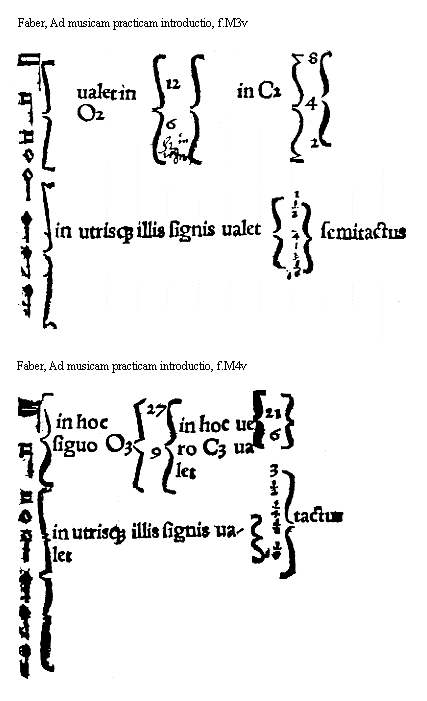 Faber, Ad musicam practicam introductio, f.M3v
ualet in
O2
12
6
in C2
8
4
2
in utrisq; illis signis ualet
semitactus
Faber, Ad musicam practicam introductio, f.M4v
in hoc
siguo O3
27
9
in hoc ue
ro C3 ua
let
21
6
in utrisq; illis signis ua-
let
3
tactus